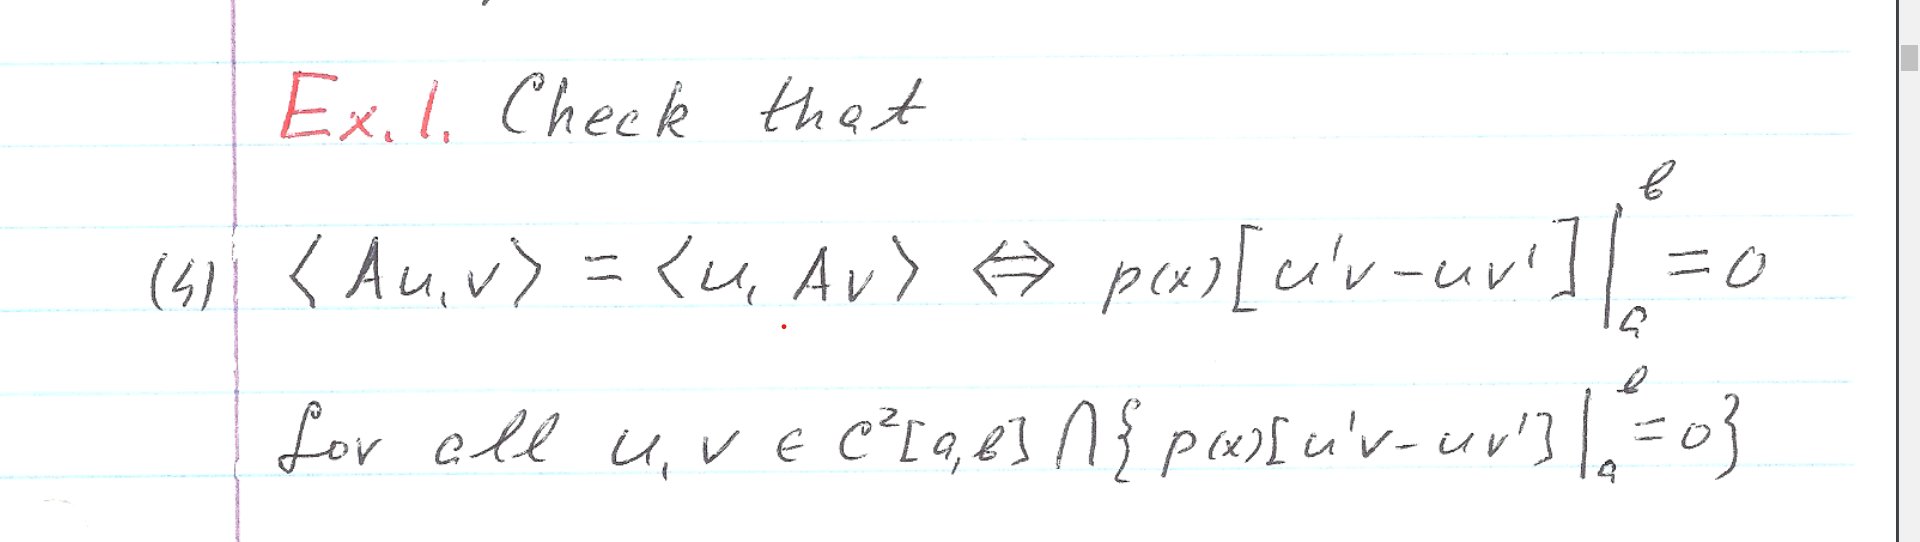 Ex. 1. Check that
(4) ⟨Au, v⟩ = ⟨u, Av⟩ ⇔ p(x)[u'v - uv']|_a^b = 0
for all u, v ∈ C²[a,b] ∩ {p(x)[u'v - uv']|_a^b = 0}